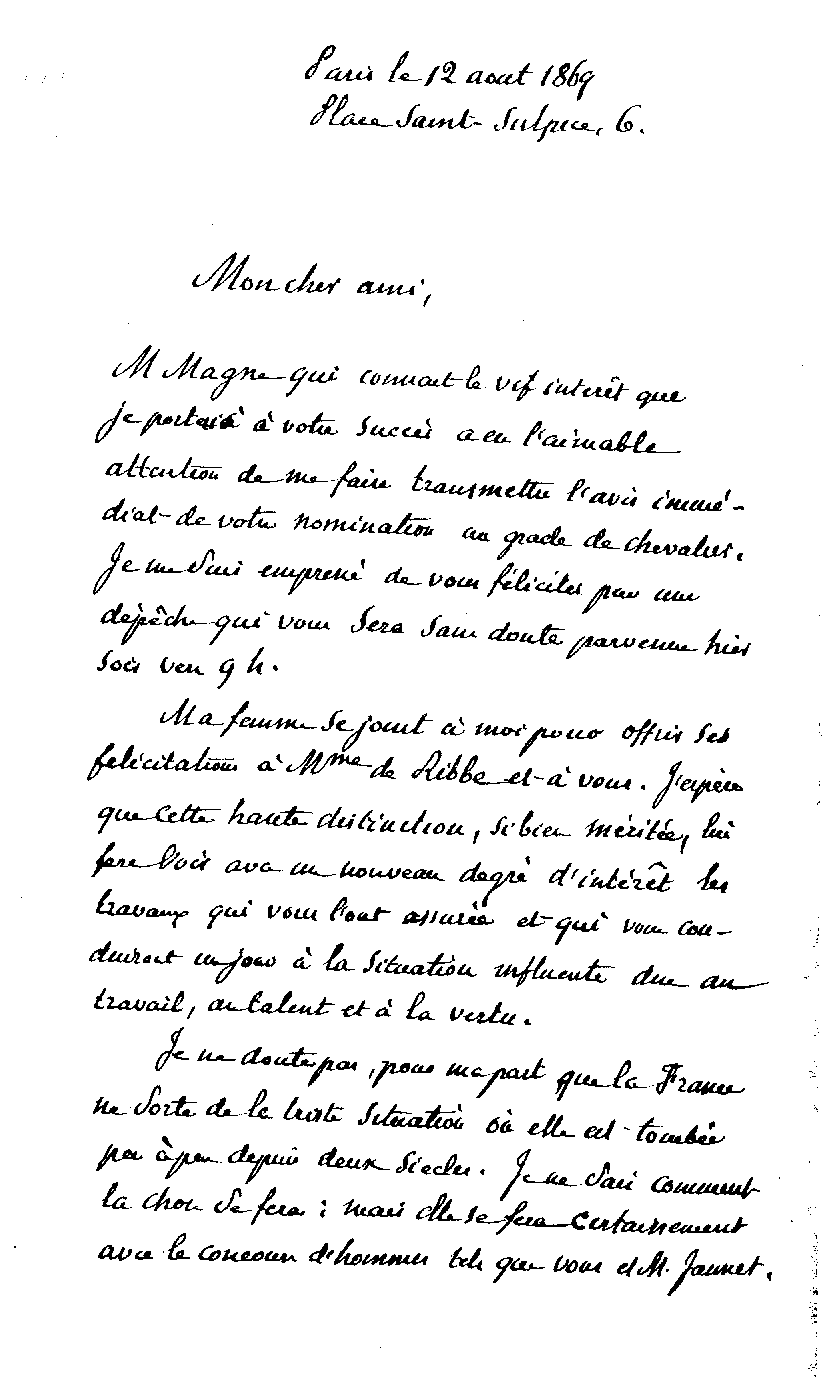 Paris le 12 aout 1869
Place Saint-Sulpice, 6.
Mon cher ami,
M Magne qui connait le vif intérêt que
je portais à votre succès a eu l'aimable
attention de me faire transmettre l'avis immé-
diat de votre nomination au grade de chevalier.
Je me suis empressé de vous féliciter par une
dépêche qui vous sera sans doute parvenue hier
soir vers 9 h.
Ma femme se joint à moi pour offrir ses
félicitations à Mme de Ribbe et à vous. J'espère
que cette haute distinction, si bien méritée, lui
fera voir avec un nouveau degré d'intérêt les
travaux qui vous l'ont assurée et qui vous con-
duiront un jour à la situation influente due au
travail, au talent et à la vertu.
Je ne doute pas, pour ma part que la France
ne sorte de la triste situation où elle est tombée
peu à peu depuis deux siècles. Je ne sais comment
la chose se fera : mais elle se fera certainement
avec le concours d'hommes tels que vous et M. Jannet.